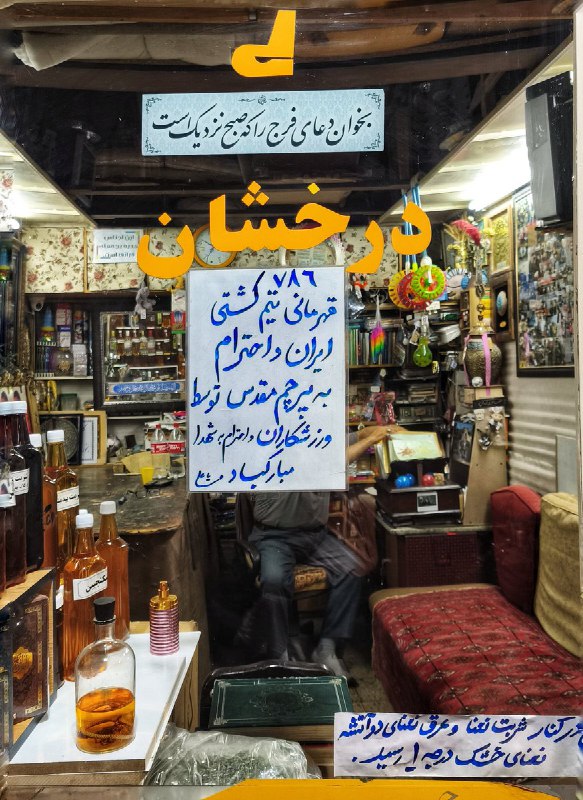 بخوان دعای فرج را که صبح نزدیک است
درخشان
۷۸۶
قهرمانی تیم کشتی
ایران و احترام
به پرچم مقدس توسط
ورزشکاران و احترام به شهدا
مبارکباد
سکنجبین
در کنار شربت نعنا و عرق نعنای دوآتشه
نعنای خشک درجه ۱ رسید.